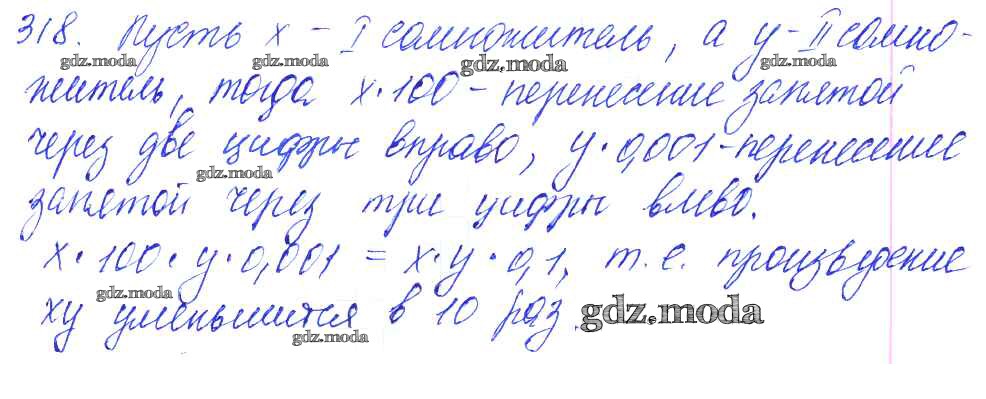 318. Пусть x - I сомножитель, а y - II сомно-
gdz.moda gdz.moda gdz.moda gdz.moda
житель, тогда x·100 - перенесение запятой
через две цифры вправо, y·0,001 - перенесение
gdz.moda
запятой через три цифры влево.
x·100·y·0,001 = x·y·0,1, т.е. произведение
gdz.moda
xy уменьшится в 10 раз.
gdz.moda
gdz.moda